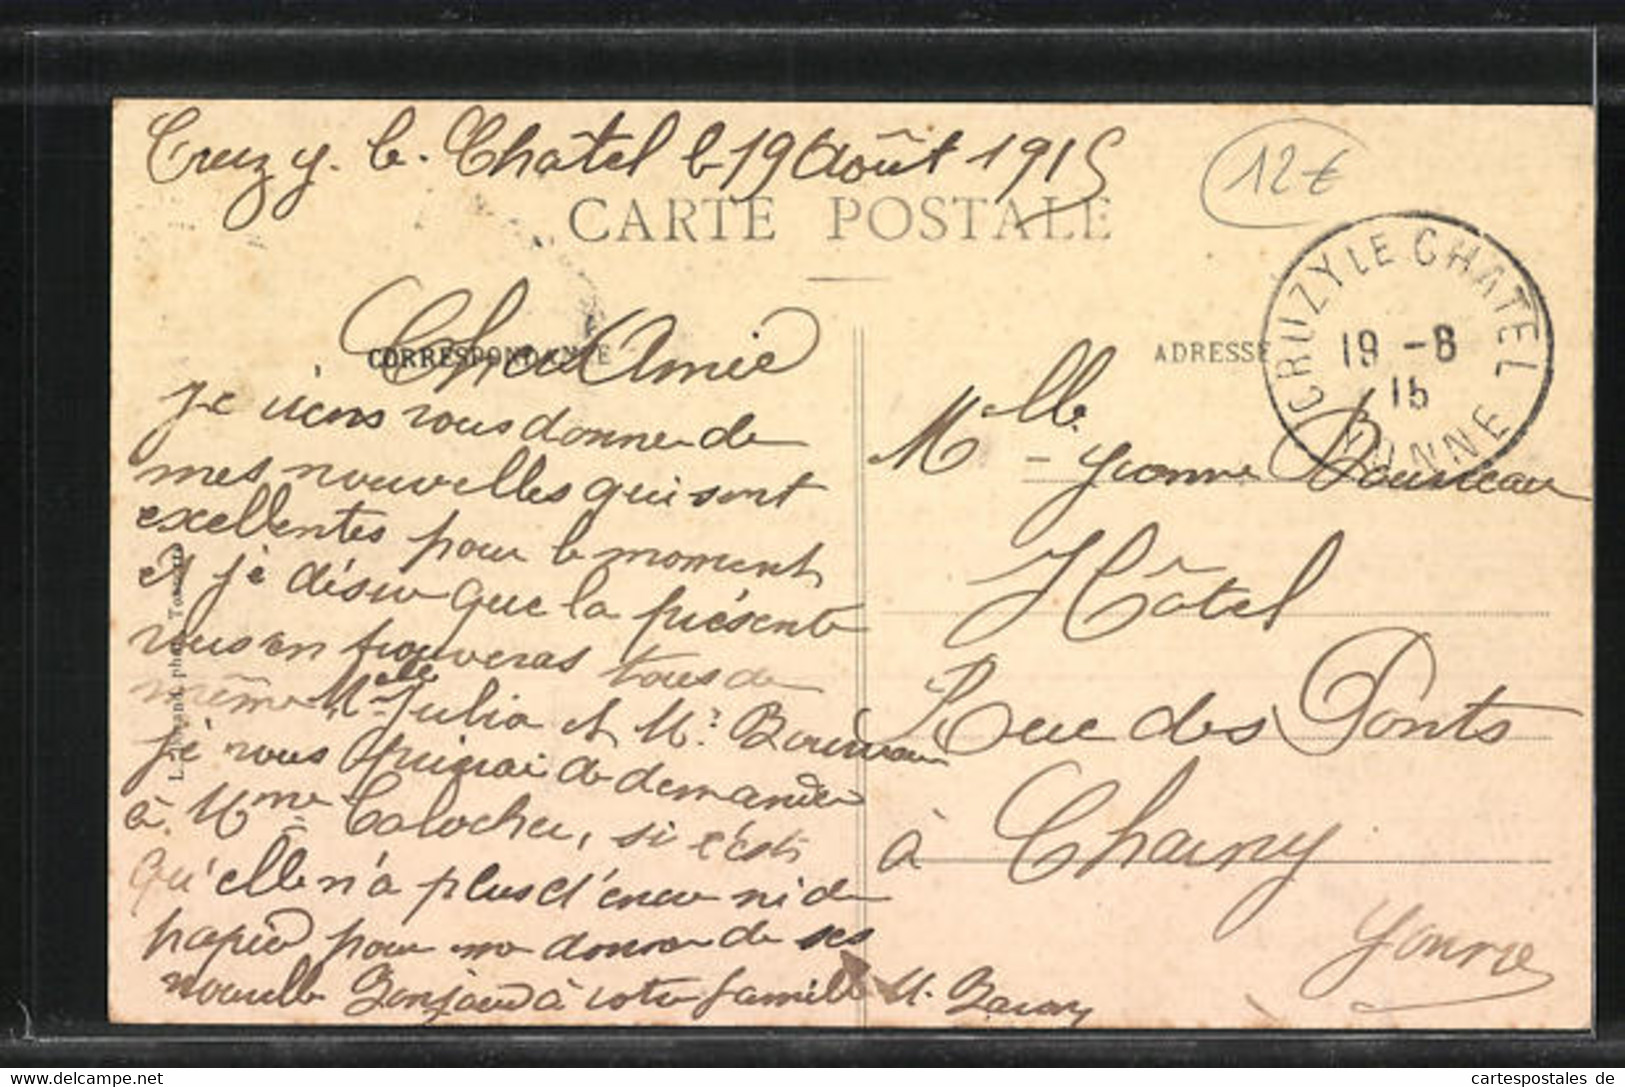 Cruzy. le. Châtel le 19 Août 1915
12€
CARTE POSTALE
CORRESPONDANCE
ADRESSE
CRUZY LE CHATEL
19 - 8
15
YONNE
Chère Amie
Je viens vous donner de
mes nouvelles qui sont
excellentes pour le moment
et je désire que la présente
vous en trouveras tous de
même Melle Julia et Mr
je vous de demander
à Mme si c'est
qu'elle n'a plus d'encre ni de
papier pour me donner de ses
nouvelle Bonjour à votre famille M.
Melle Yvonne
Hôtel
Rue des Ponts
à Charny
Yonne
phot. Tonnerre
cartespostales de